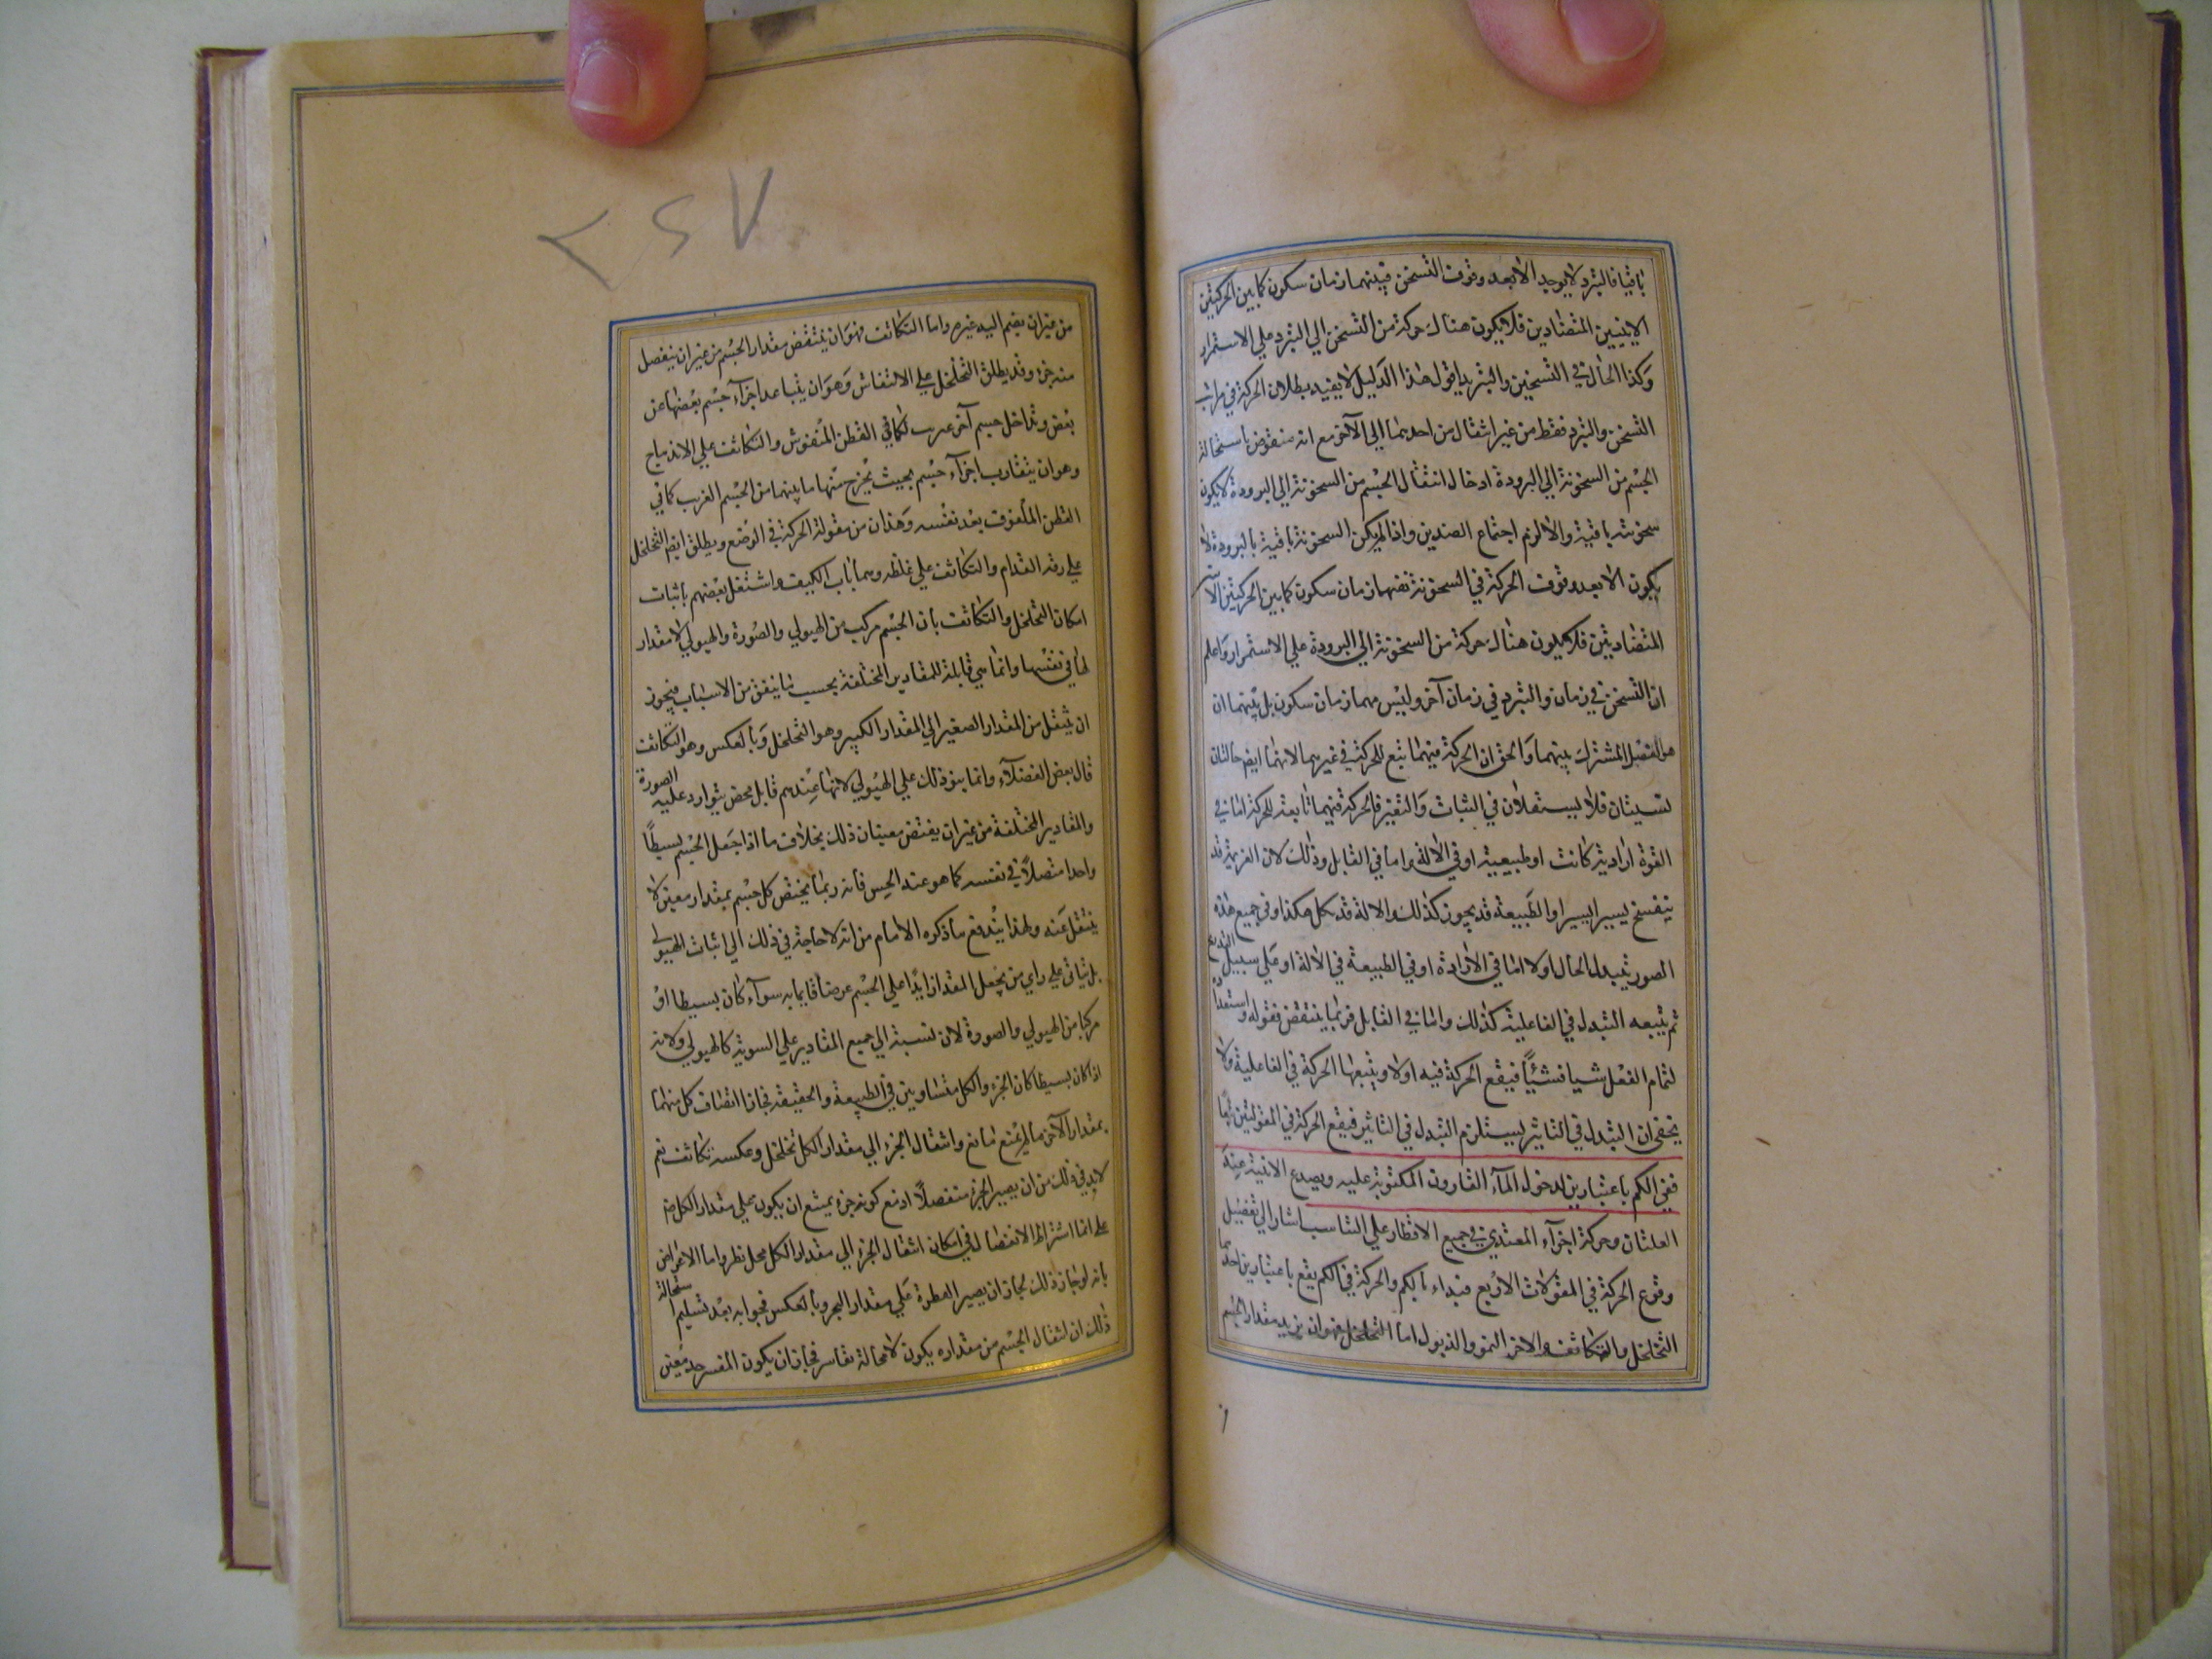 باقيا فالتبرد لا يوجد الا بعد وقوف التسخن فبينهما زمان سكون كما بين الحركتين
الاينيين المتضادين فلا يكون هناك حركة من التسخن الي التبرد علي الاستمرار
وكذا الحال في التسخين والتبريد اقول هذا الدليل لا يفيد بطلان الحركة في مراتب
التسخن والتبرد فقط من غير انتقال من احدهما الي الآخر مع انه منقوض باستحالة
الجسم من السخونة الي البرودة اذ حال انتقال الجسم من السخونة الي البرودة لا يكون
سخونته باقية والا لزم اجتماع الضدين واذا لم يكن السخونة باقية فالبرودة لا
يكون الا بعد وقوف الحركة في السخونة فبينهما زمان سكون كما بين الحركتين
المتضادتين فلا يكون هناك حركة من السخونة الي البرودة علي الاستمرار واعلم
ان التسخن في زمان والتبرد في زمان آخر وليس بينهما زمان سكون بل بينهما آن
هو الفصل المشترك بينهما والحق ان الحركة فيهما تبع للحركة في غيرهما لانهما ايضا حالتان
نسبيتان فلا يستقلان في الثبات والتغير فالحركة فيهما تابعة للحركة اما في
القوة ارادية كانت او طبيعية او في الآلة واما في القابل وذلك لان العزيمة قد
ينفسخ يسيرا يسيرا والطبيعة قد يخور كذلك والالة قد يكل هكذا وفي جميع هذه
الصور يتبدل الحال اولا اما في الارادة او في الطبيعة في الالة او علي سبيل التدريج
ثم يتبعه التبدل في الفاعلية كذلك واما في القابل فربما ينتقض قبوله واستعداده
لتمام الفعل شيا فشيئا فيقع الحركة فيه اولا ويتبعها الحركة في الفاعلية ولا
يخفى ان التبدل في التأثير يستلزم التبدل في التاثر فيقع الحركة في المقولتين تبعا
ففي الكم باعتبارين لدخول المآء القارورة المكبوبة عليه وبصدع الانية عند
الغليان وحركة اجزآء المغتذي في جميع الاقطار علي التناسب اشار الي تفصيل
وقوع الحركة في المقولات الاربع فبداء بالكم والحركة في الكم يقع باعتبارين احدهما
التخلخل والتكاثف والاخر النمو والذبول اما التخلخل فهو ان يزيد مقدار الجسم
من غير ان ينضم اليه غيره واما التكاثف فهو ان ينتقص مقدار الجسم من غير ان ينفصل
منه جزء وقد يطلق التخلخل علي الانتفاش وهو ان يتباعد اجزآء جسم بعضها عن
بعض ويداخل جسم آخر غريب كما في القطن المنفوش والتكاثف علي الاندماج
وهو ان يتقارب اجزآء جسم بحيث يخرج منها ما بينهما من الجسم الغريب كما في
القطن الملفوف بعد نفشه وهذان من مقولة الحركة في الوضع ويطلق ايضا التخلخل
علي رقة القوام والتكاثف علي غلظه وهما باب الكيف واشتغل بعضهم باثبات
امكان التخلخل والتكاثف بان الجسم مركب من الهيولي والصورة والهيولي لا مقدار
لها في نفسها وانما هي قابلة للمقادير المختلفة بحسب ما يتفق من الاسباب فيجوز
ان ينتقل من المقدار الصغير الي المقدار الكبير وهو التخلخل وبالعكس وهو التكاثف
قال بعض الفضلآء وانما بنو ذلك علي الهيولي لانها عندهم قابل محض يتوارد عليه الصورة
والمقادير المختلفة من غير ان يقتضي معينا من ذلك بخلاف ما اذا جعل الجسم بسيطا
واحدا متصلا في نفسه كما هو عند الحس فانه ربما يختص كل جسم بمقدار معين لا
ينتقل عنه وبهذا يندفع ما ذكره الامام من انه لا حاجة في ذلك الي اثبات الهيولي
بل يتاتى علي راي من يجعل المقدار زايدا علي الجسم عرضا قايما به سوآء كان بسيطا او
مركبا من الهيولي والصورة لان نسبته الي جميع المقادير علي السوية كالهيولي ولانه
اذا كان بسيطا كان الجزء والكل متساويين في الطبيعة والحقيقة فجاز اتصاف كل منهما
بمقدار الآخر ما لم يمنع مانع وانتقال الجزء الي مقدار الكل تخلخل وعكسه تكاثف نعم
لا بد في ذلك من ان يصير الجزء منفصلا اذ مع كونه جزء يمتنع ان يكون علي مقدار الكل
علي انما اشتراط الانفصال في امكان انتقال الجزء الي مقدار الكل محل نظر واما الاعتراض
بانه لو جاز ذلك لجاز ان يصير القطرة علي مقدار البحر وبالعكس فجوابه بعد تسليم استحالة
ذلك ان انتقال الجسم من مقداره يكون لا محالة بقاسر فجاز ان يكون للقسر حد معين